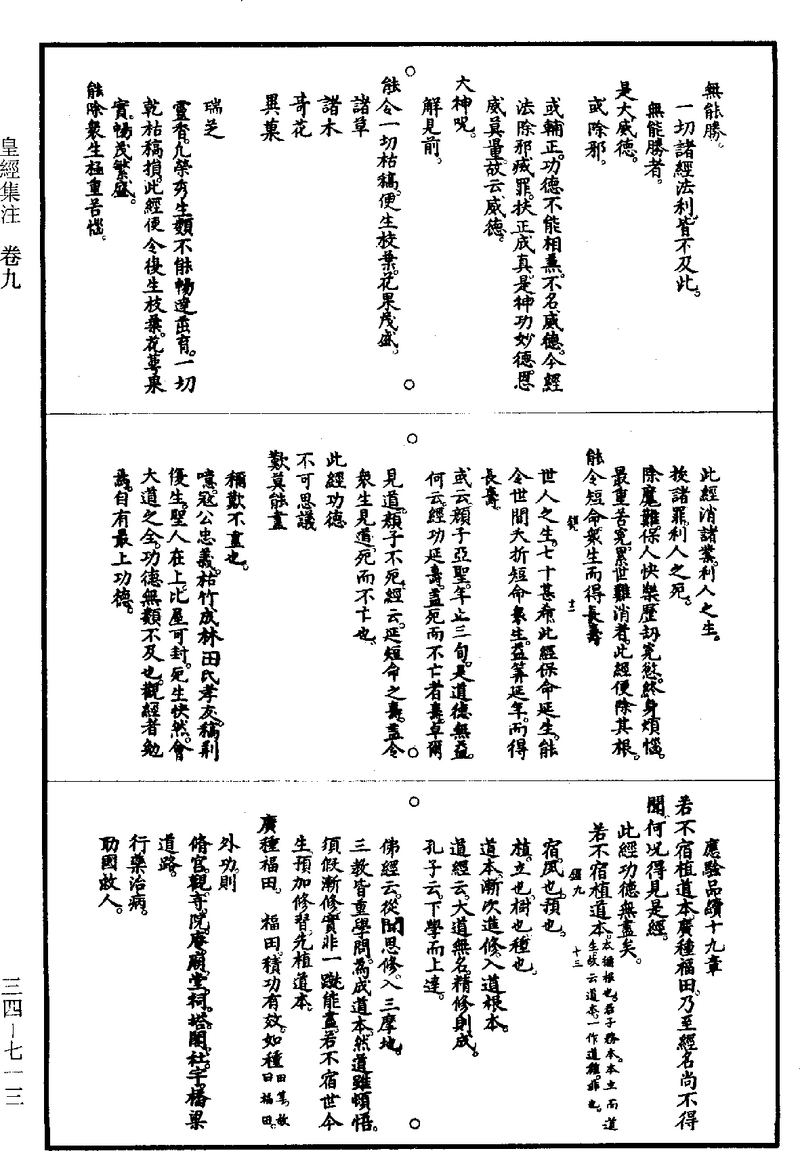 皇經集注　卷九
三四－七一三
無能勝。
一切諸經法利皆不及此。
無能勝者。
是大威德。
或除邪。
或輔正。功德不能相兼。不名威德。今經
法除邪滅罪。扶正成真。是神功妙德。恩
威莫量。故云威德。
大神呪。
解見前。
能令一切枯稿。便生枝葉。花果茂盛。
諸草
諸木
奇花
異菓
瑞芝
靈香。九榮秀生類不能暢達茁育。一切
乾枯稿損。此經便令復生枝葉。花萼果
實。暢茂繁盛。
能除衆生極重苦惱。
此經消諸業。利人之生。
拔諸罪。利人之死。
除魔難。保人快樂。歷劫冤愆。終身煩惱。
最重苦冤。累世難消者。此經便除其根。
能令短命衆生而得長壽
世人之生。七十甚希。此經保命延生。能
令世間夭折短命衆生。益筭延年。而得
長壽。
或云顏子亞聖。年止三旬。是道德無益。
何云經功延壽。蓋死而不亡者壽。卓爾
見道。顏子不死。經云。延短命之壽。蓋令
衆生見道。死而不亡也。
此經功德
不可思議
歎莫能盡
稱歎不盡也。
噫。寇公忠義。枯竹成林。田氏孝友。稿荆
復生。聖人在上。比屋可封。死生快然。會
大道之全。功德無類不及也。觀經者勉
焉。自有最上功德。
應驗品續十九章
若不宿植道本。廣種福田。乃至經名尚不得
聞。何况得見是經。
此經功德無盡矣。
若不宿植道本。本猶根也。君子務本。本立而道
生。故云道本。一作道種。非也。
經九
十三
宿。夙也。預也。
植。立也。樹也。種也。
道本。漸次進修。入道根本。
道經云。大道無名。精修則成。
孔子云。下學而上達。
佛經云。從聞思修。入三摩地。
三教皆重學問。爲成道本。然道雖頓悟。
須假漸修。實非一蹴能盡。若不宿世今
生。預加修習。先植道本。
廣種福田。　福田。積功有效。如種田焉。故
曰福田。
外功。則
脩宫。觀。寺。院。庵。廟。堂。祠。塔。閣。社。字。橋梁
道路。
行藥治病。
助國救人。